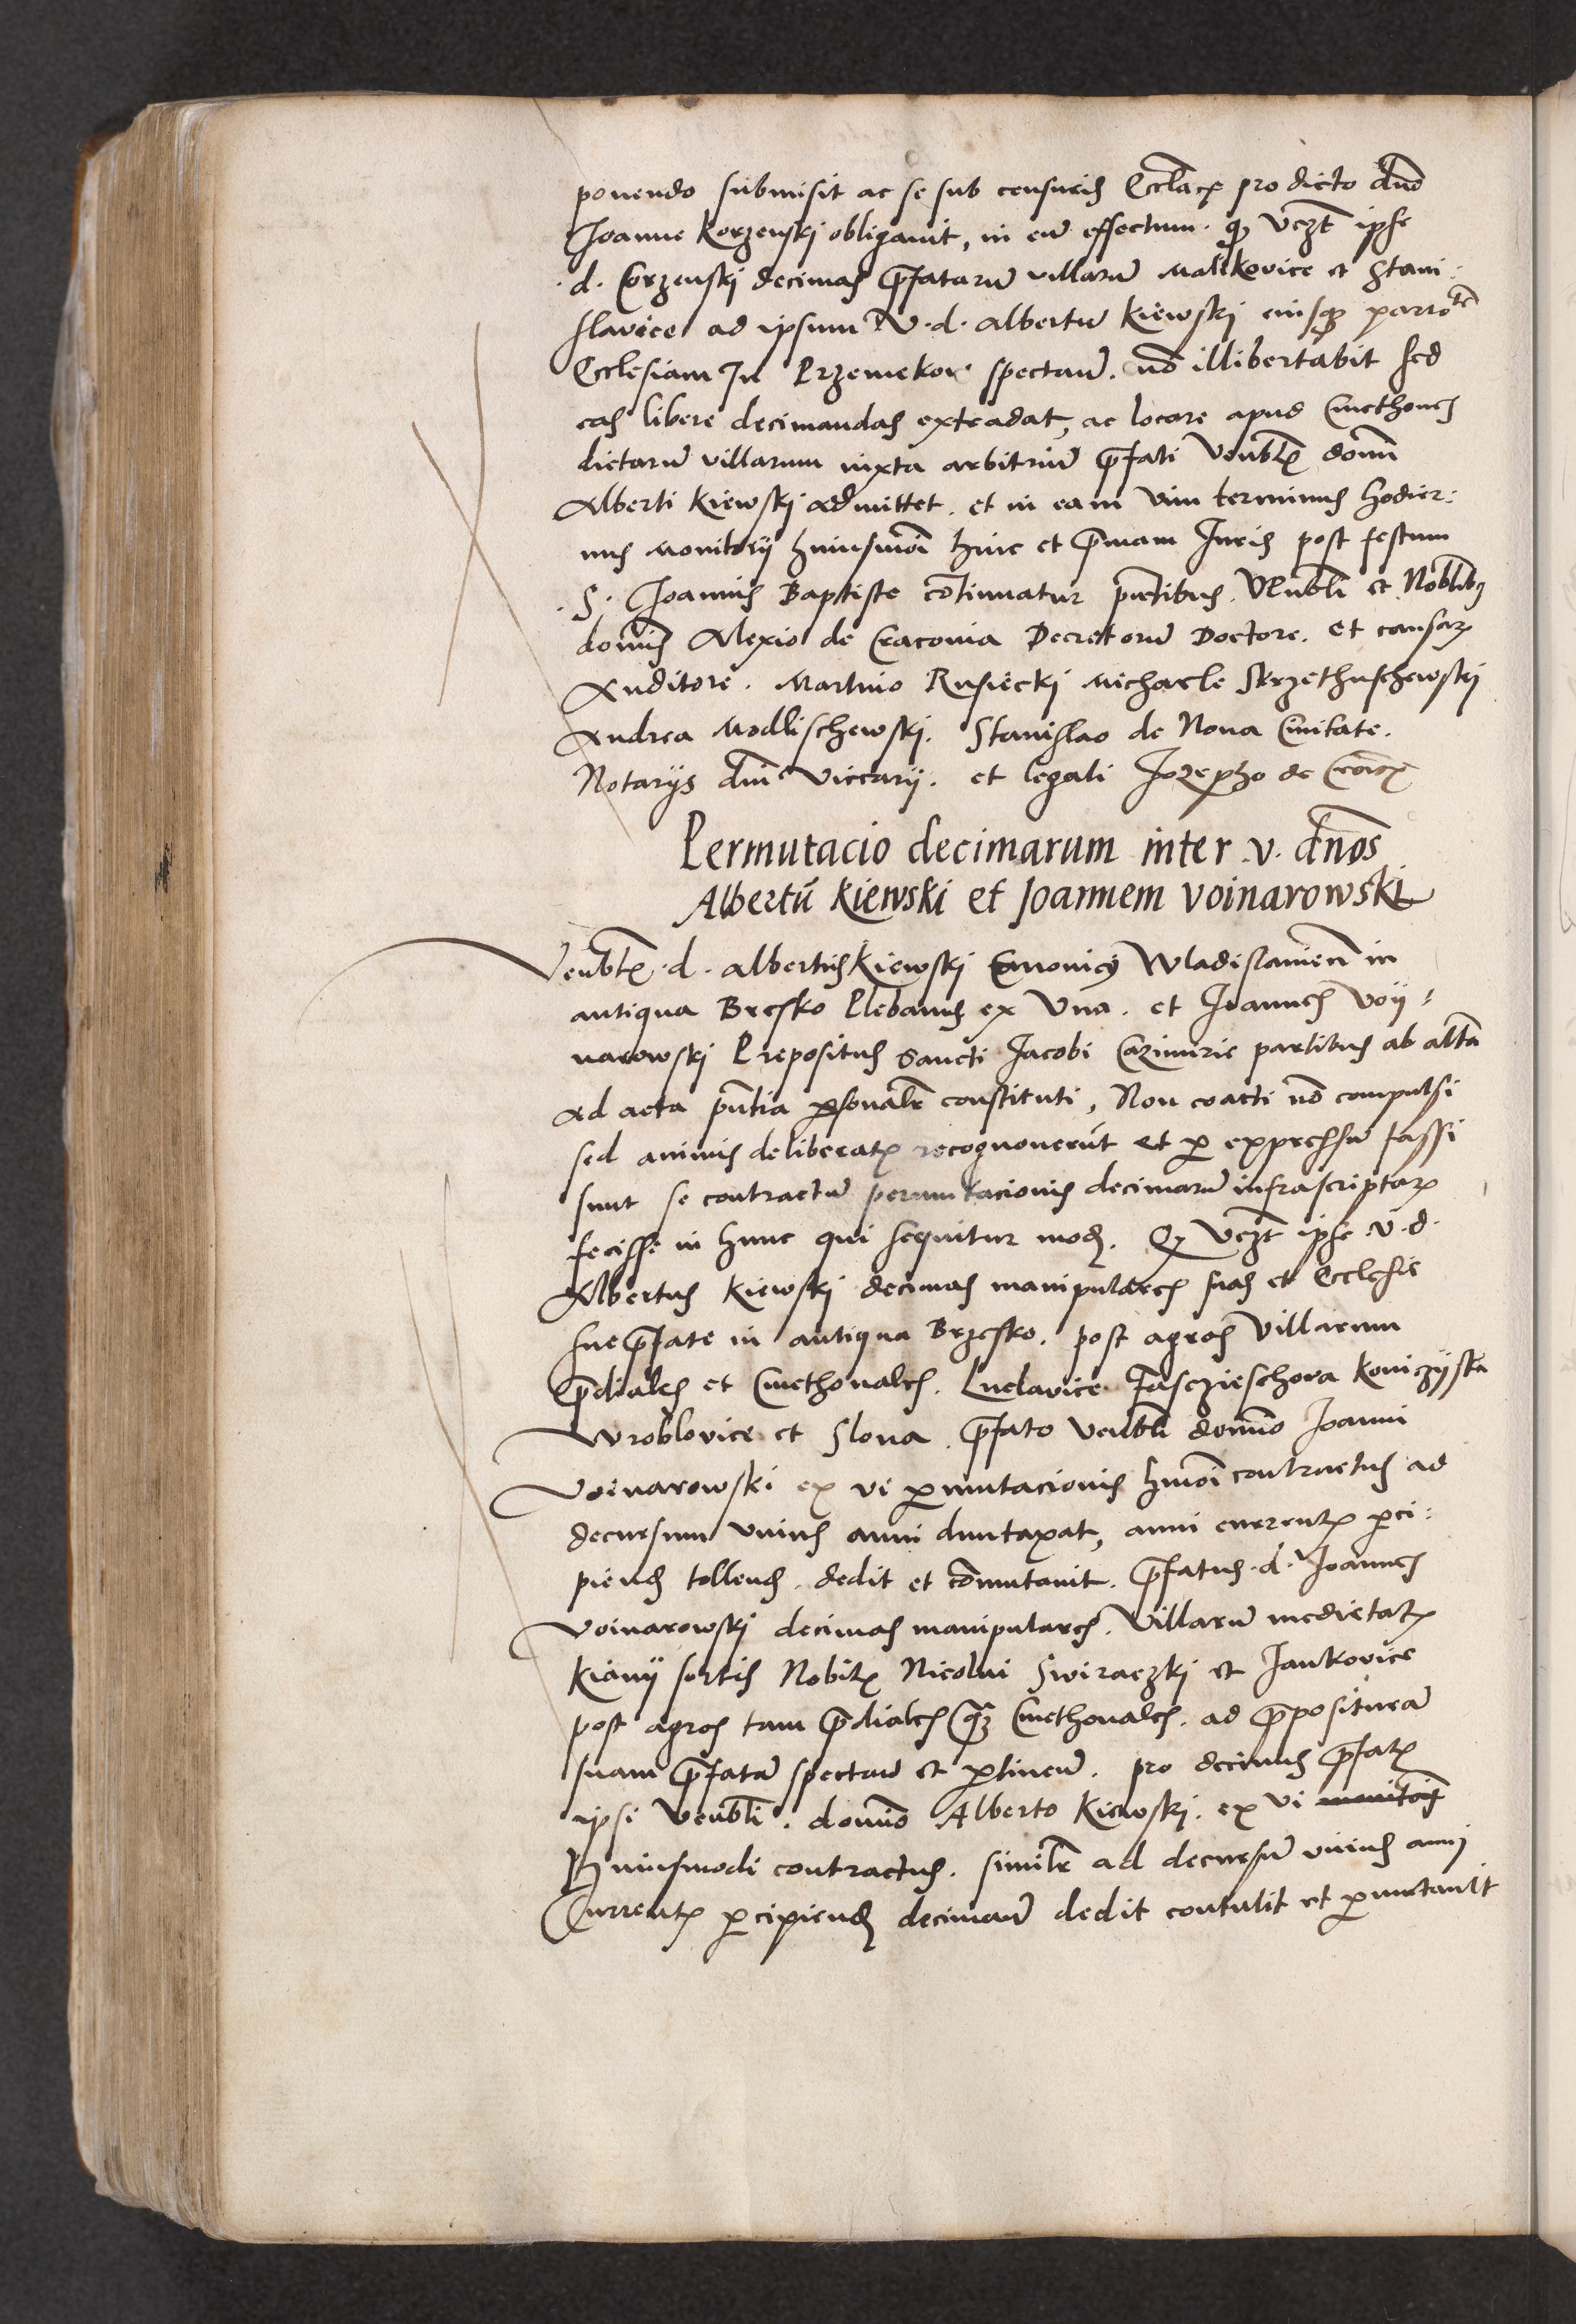 ponendo submisit ac se sub censuris Eccl̃acꝝ pro dicto dño
Joanne Korzenski obligavit, in eũ effectum. qꝫ vezt̃ ipse
.d. Corzenski decimas p̃fatarũ villarũ Malkovice et Stani:
slavice ad ipsum V.d. Albertũ Kiewski eiusqꝫ parro
Ecclesiam In Przemekow spectañ. nõ illibertabit sed
eas libere decimandas extradat, ac locare apud Cmethones
dictarũ villarum iuxta arbitriũ p̃fati Venĩblꝭ domĩ
Alberti Kiewski admittet. et in eam vim terminus hodier:
nus Monitorij huiusmõi hinc et p̃mam Juris post festum
.S. Joannis Baptiste cõtinuatur pñtibus. Vñbli et Noblĩbꝫ
domĩs Alexio de Cracovia Decretorũ Doctore. et causaꝝ
Auditore. Martino Rusiecki Michaele Skrzethuschewski
Andrea Modlischewski. Stanislao de Nova Civitate.
Notarijs dñi viccarij. et legali Jozepho de Cracoꝭ
Permutacio decimarum inter .v. dños
Albertũ Kiewski et Joannem Voinarowski
Veñblꝭ .d. Albertus Kiewski Canonicꝰ Wladislavieñ in
antiqua Bresko Plebanus ex Una. et Joannes Voij:
narowski Prepositus Sancti Jacobi Cazimirie partibus ab alt̃a
ad acta pñtia ꝑsonalr̃ constituti, Non coacti nõ compulsi
sed animis deliberatꝭ recognoverũt et ꝑ expressũ fassi
sunt se contractũ permutacionis decimarũ infrascriptaꝝ
fecisse in hunc qui sequitur modũ. Qꝫ vezt̃ ipse V.d.
Albertus Kiewski decimas manipulares suas et Ecclesie
sue p̃fate in antiqua Brzesko. post agros villarum
p̃diales et Cmethonales. Luclavice Fasczieschova Koniczyska
Wroblovice et Slona. p̃fato Veñbli domĩo Joanni
Voinarowski ex vi ꝑmutacionis hmõi contractus ad
decursum unius anni duntaxat, anni currentꝭ ꝑci:
piend̃ tollend̃. dedit et cõmutavit. p̃fatus .d. Joannes
Voinarowski decimas manipulares. villarũ medietatꝭ
Kiany sortis Nobilꝭ Nicolai Swiraczki et Jankovice
post agros tam p̃diales qꝫ Cmethonales. ad p̃positurã
suam p̃fatã spectañ et ꝑtineñ. pro decimis p̃fatꝭ
ipsi Veñbli. domĩo Alberto Kiewski. ex vi
Huiusmodi contractus. similr̃ ad decursũ unius anni
Currentꝭ ꝑcipiend̃ decimañ dedit contulit et ꝑmutavit